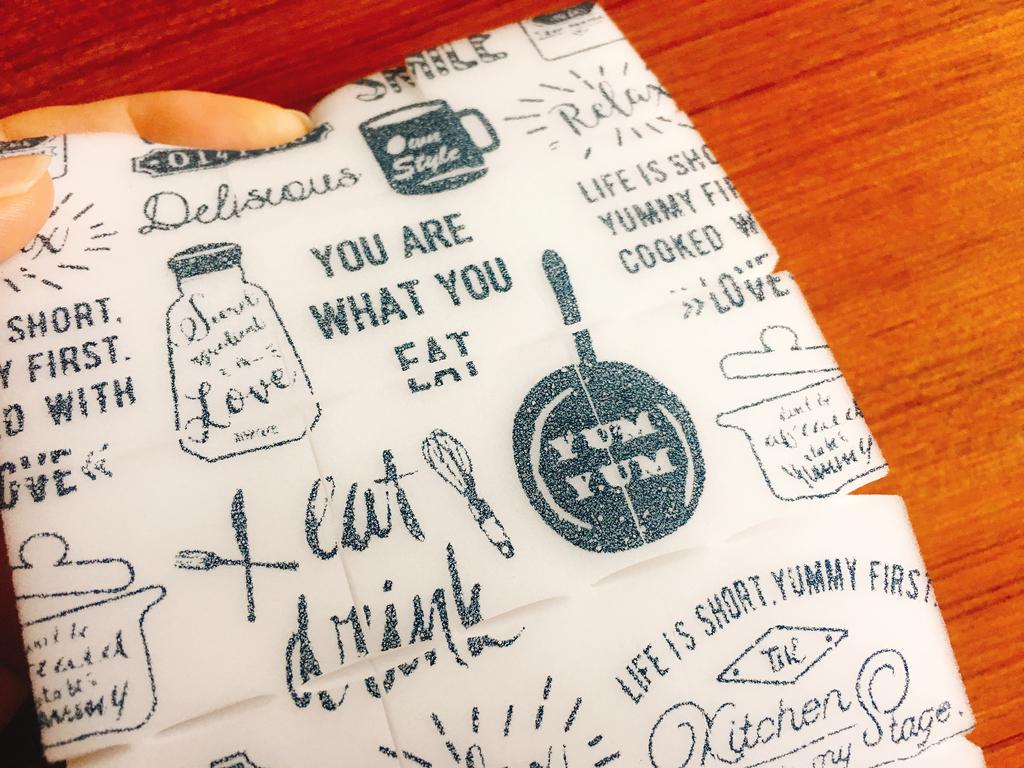 SMILE
Own
Style
Relax
Delicious
LIFE IS SHO
YUMMY FI
COOKED W
»LOVE
YOU ARE
WHAT YOU
EAT
SHORT.
Y FIRST.
D WITH
OVE«
Love
YUM
YUM
eat
drink
YUMMY
LIFE IS SHORT. YUMMY FIRST
THE
Kitchen
my Stage.